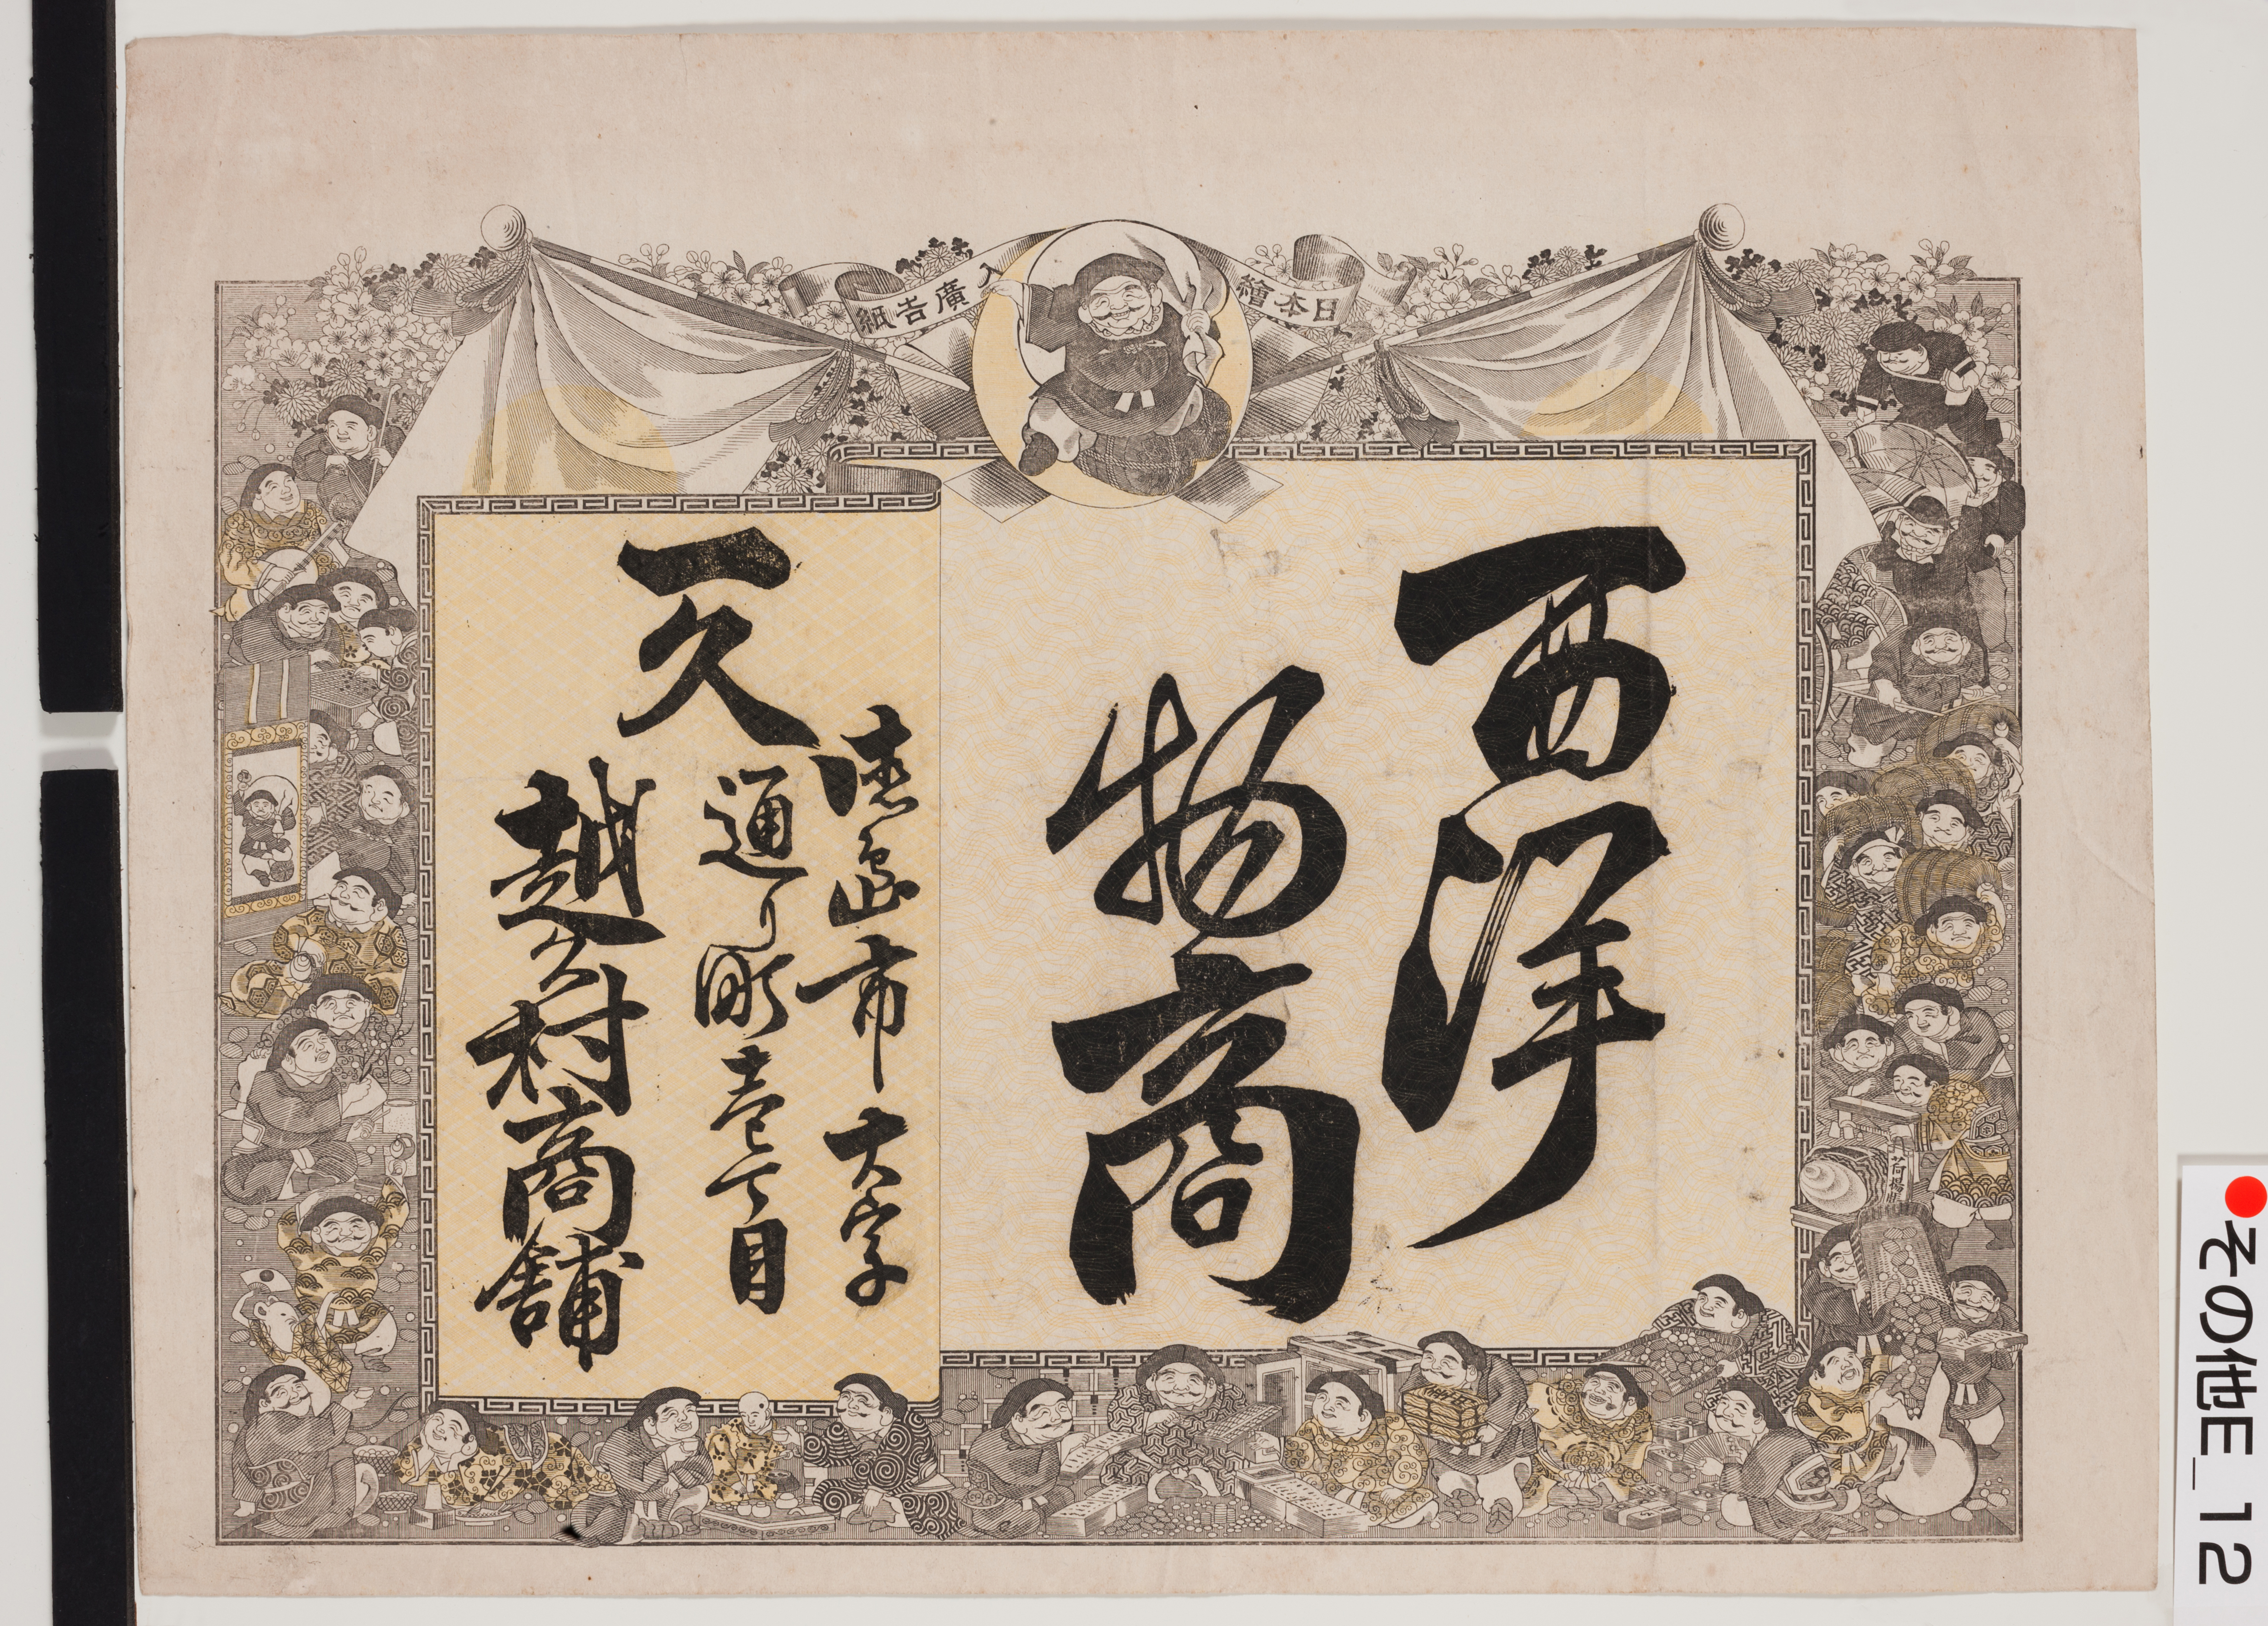 日本繪入廣告紙
西洋
物商
德島市大字
通り町壱丁目
一久
越久村商舗
その他E_12